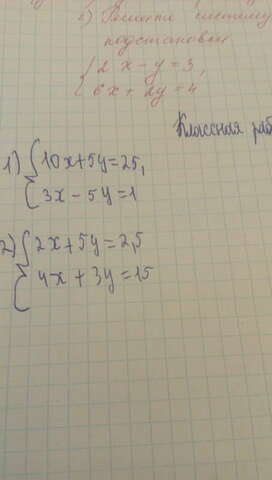 2) Решите систему
подстановкой
{ 2x-y=3,
6x+2y=4
Классная раб
1) { 10x+5y=25,
3x-5y=1
2) { 2x+5y=2,5
4x+3y=15